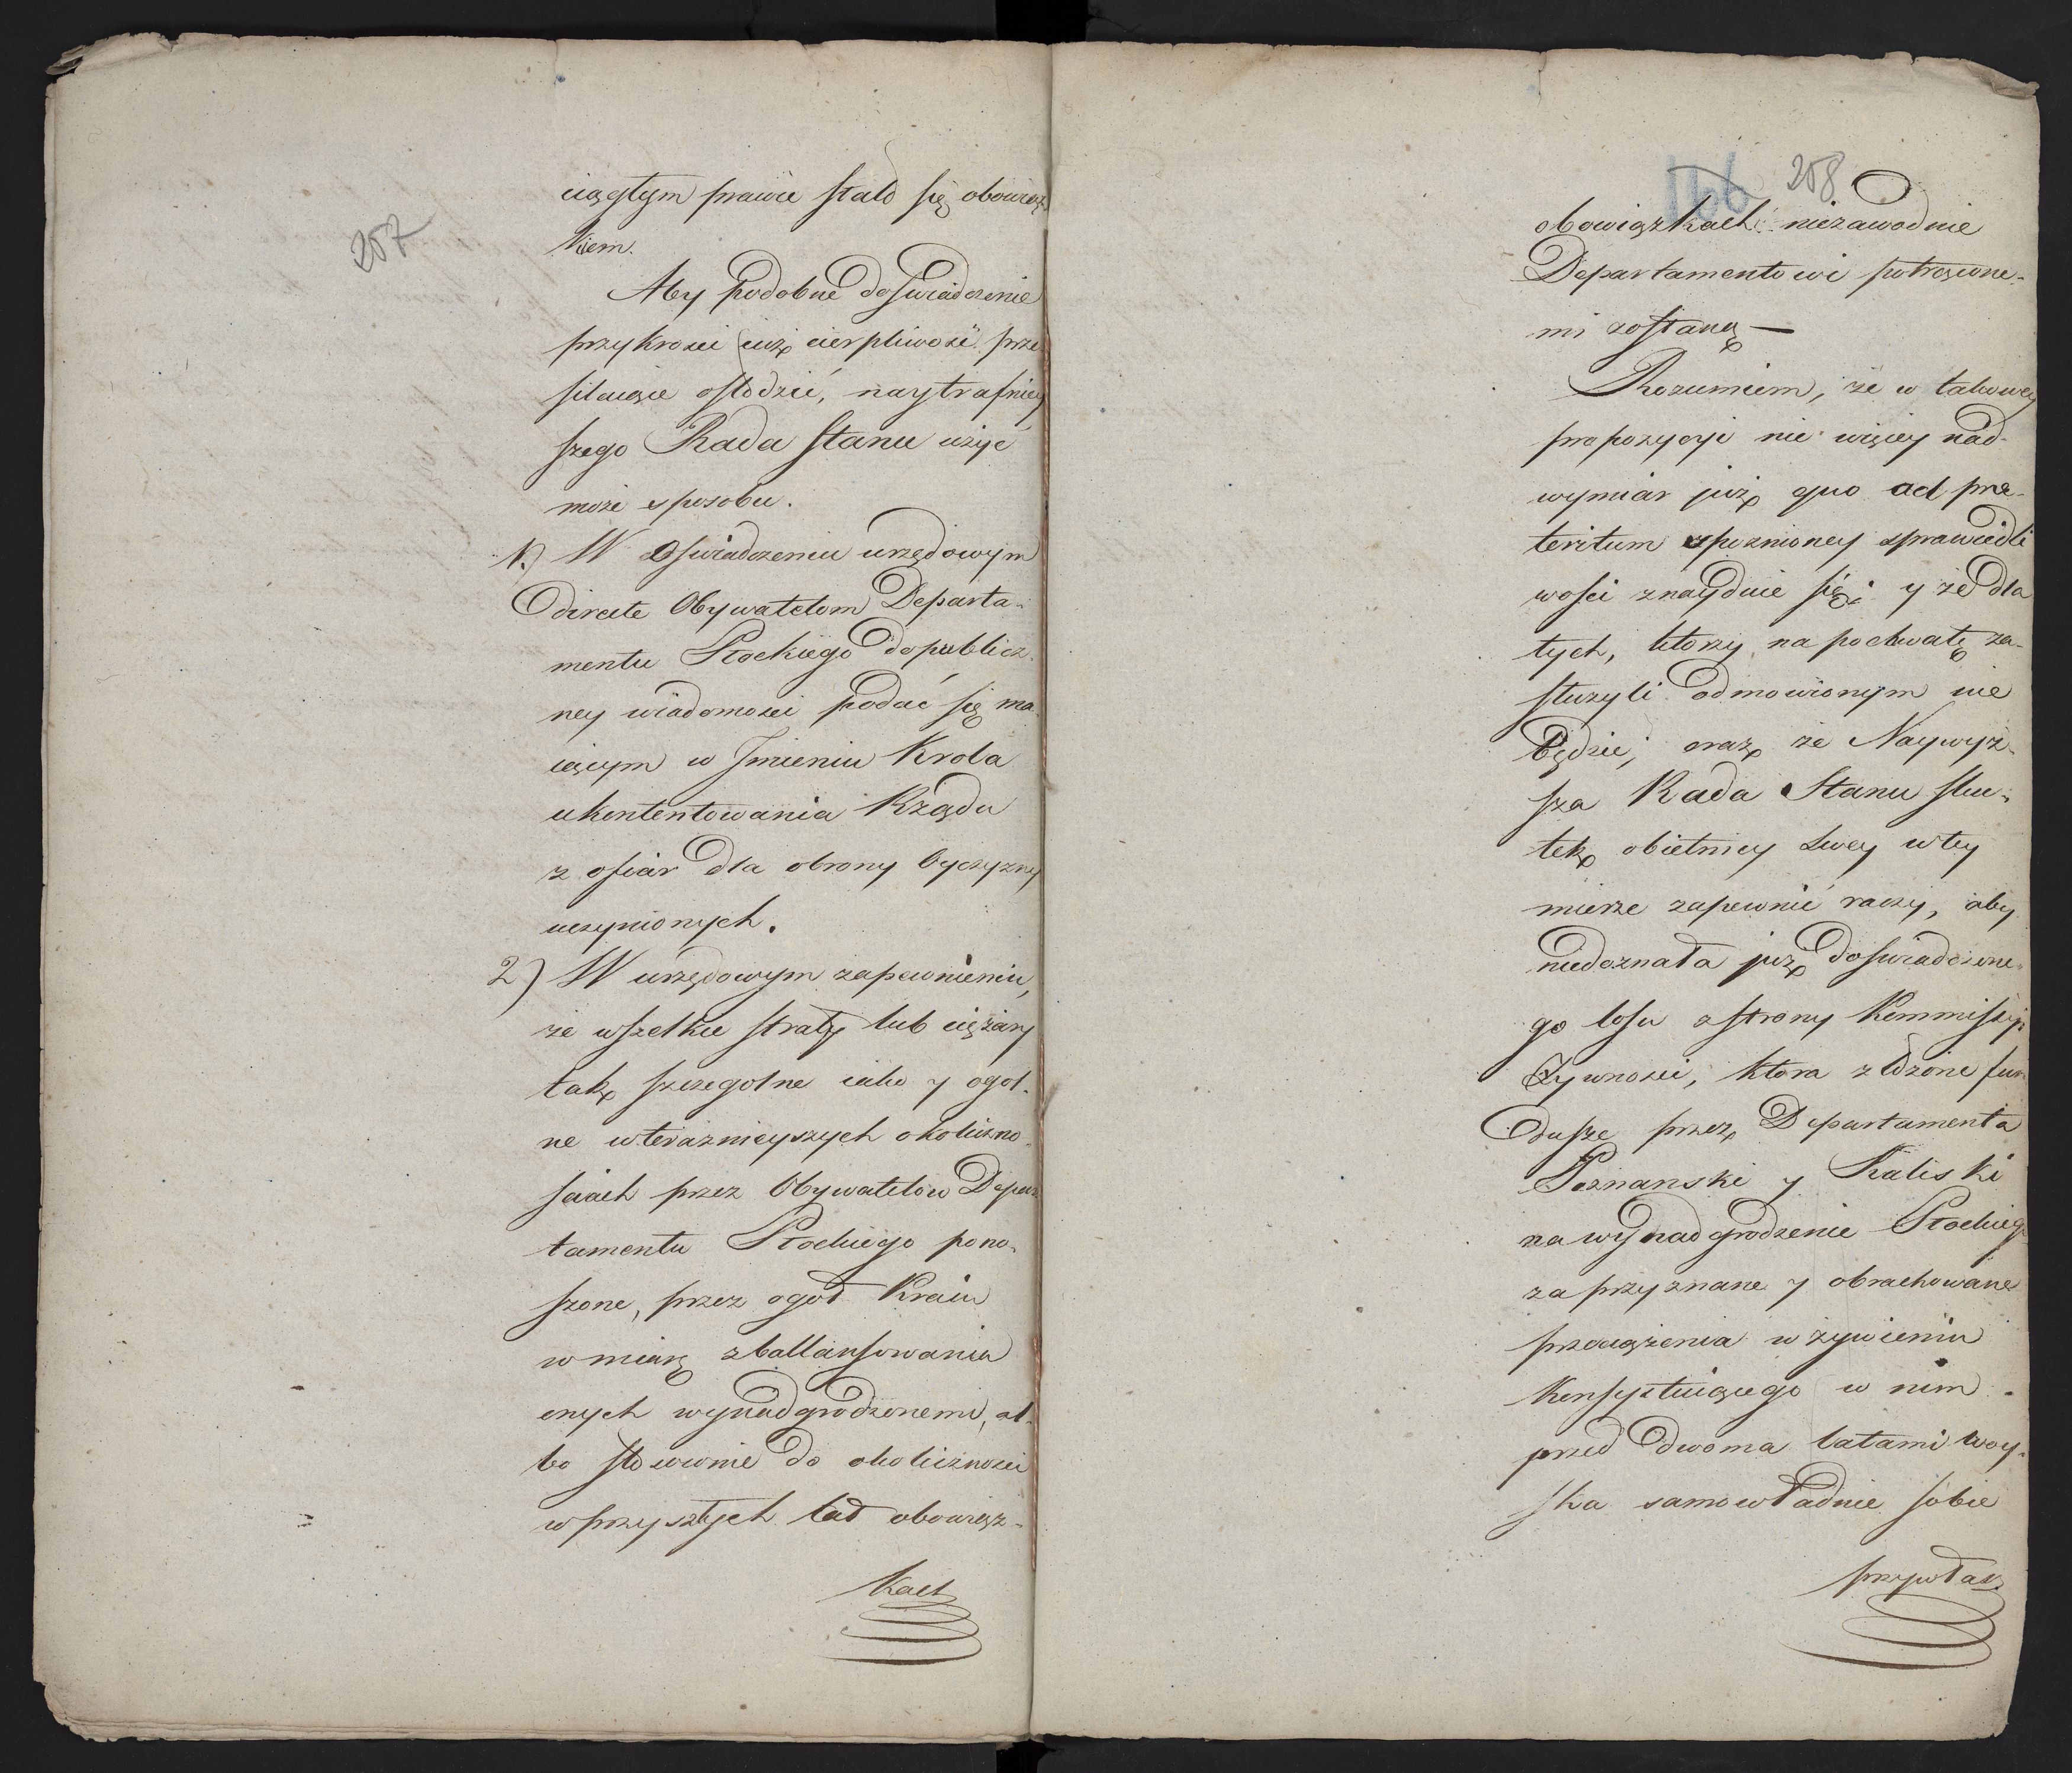 207
ciągłym prawie stało się obowiąz-
kiem.
Aby podobne doświadczenie
przykrości iuż cierpliwość prze
silaiące osłodzić, naytrafniey
szego Rada Stanu użyć
może sposobu.
1.) W Oświadczeniu urzędowym
directe Obywatelom Departa-
mentu Płockiego do publicz-
ney wiadomości podać się ma-
iącym w Imieniu Krola
ukontentowania Rządu
z ofiar dla obrony Oyczyzny
uczynionych.
2) W urzędowym zapewnieniu,
że wszelkie straty lub ciężary
tak szczegolne iako y ogol-
ne w teraznieyszych okoliczno-
ściach przez Obywatelow Depar
tamentu Płockiego pono-
szone, przez ogoł Kraiu
w miarę zballansowania
onych wynadgrodzonemi, al-
bo stosownie do okoliczności
w przyszłych lat obowiąz-
kach
166 208
obowiązkach niezawodnie
Departamentowi potrącone-
mi zostaną —
Rozumiem, że w takowey
propozycyi nie więcey nad-
wymiar już quo ad pre-
teritum spoznioney sprawiedli
wości znayduie się; y że dla
tych, ktorzy na pochwałę za-
służyli odmowionym nie
będzie; oraz że Naywyż-
sza Rada Stanu sku-
tek obietnicy swey w tey
mierze zapewnić raczy, aby
niedoznała już doświadczone-
go losu z strony Kommissyi
Żywności, ktora złożone fun
dusze przez Departamenta
Poznanski y Kaliski
na wynadgrodzenie Płockiego
za przyznane y obrachowane
przeciążenia w żywieniu
Konsystuiącego w nim
przed dwoma latami woy-
ska samowładnie sobie
przywłasz